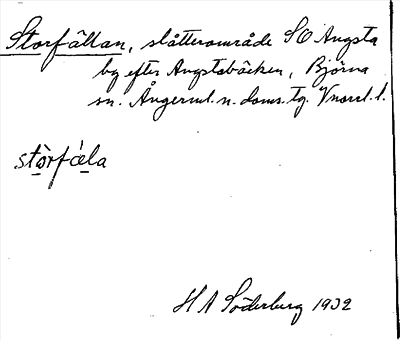 Storfällan, slåtterområde SO Angsta
by efter Angstabäcken, Björna
sn. Ångerml. n. doms. tg. Vnorrl. l.
stòrfǽla
H A Söderberg 1932